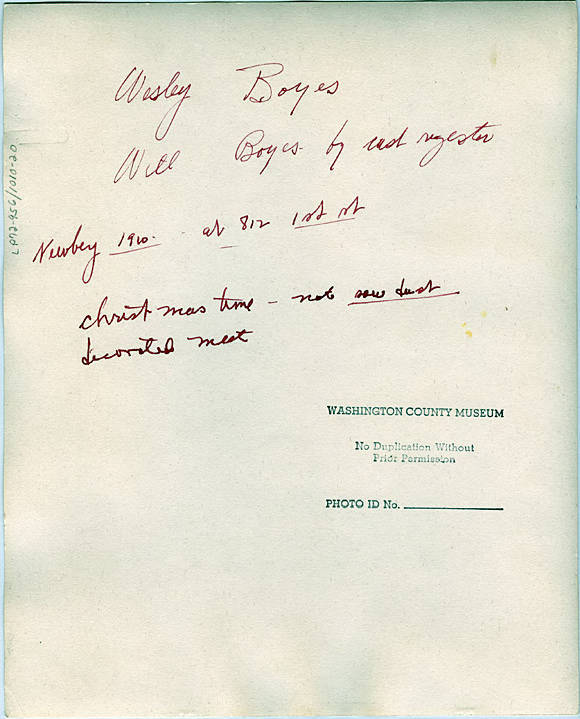 Wesley Boyes
Will Boyes by cash register
Newberg 1910 - at 812 1st st
christmas time - note saw dust
decorated meat
WASHINGTON COUNTY MUSEUM
No Duplication Without
Prior Permission
PHOTO ID No.